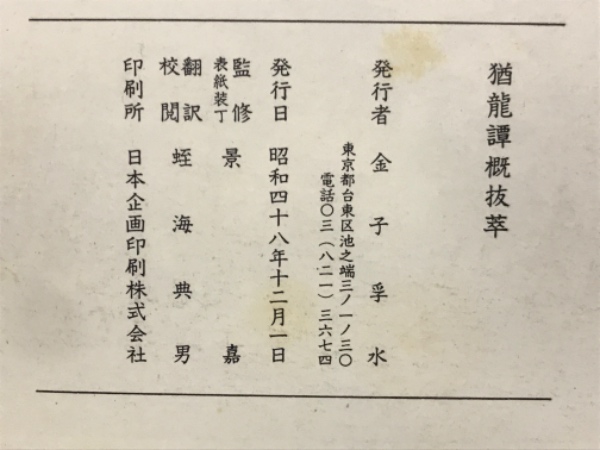 猶龍譚概抜萃
発行者 金子孚水
東京都台東区池之端三ノ一ノ三〇
電話〇三(八二一)三六七四
発行日 昭和四十八年十二月一日
監修
表紙装丁 景嘉
翻訳
校閲 蛭海典男
印刷所 日本企画印刷株式会社